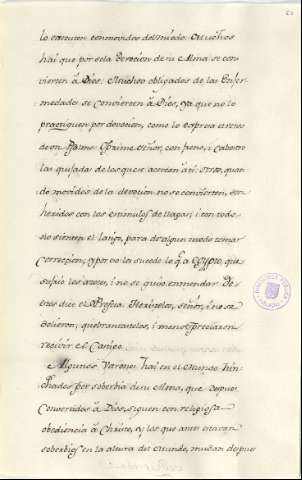 lo executen conmovidos del miedo. Muchos
hai que por sola devocion de su Alma se con
vierten â Dios: Muchos obligados de las Enfer
medades se convierten â Dios, ya que no lo
por devocion, como lo expresa
Psalmo Señor, con freno, i cabestro
las quijadas de los que se acercan â ti: otros, quan
do movidos de la devocion no se convierten, son
heridos con los estimulos de llagas; i con todo
no sienten el latigo, para de algun modo tomar
correpcion, y por lo sucede lo q.e a Egypto, que
sufrió los azotes, i no se quiso enmendar. De
estos dice el Profeta: Heristelos, señor, i no se
dolieron; quebrantastelos, i menospreciaron
recivir el Castigo.
Algunos Varones hai en el Mundo hin
chados por soberbia de su Alma, que despues
Convertidos â Dios, siguen con religiosa
obediencia â Christo, y los que antes estavan
soberbios en la altura del Mundo, mudan despues